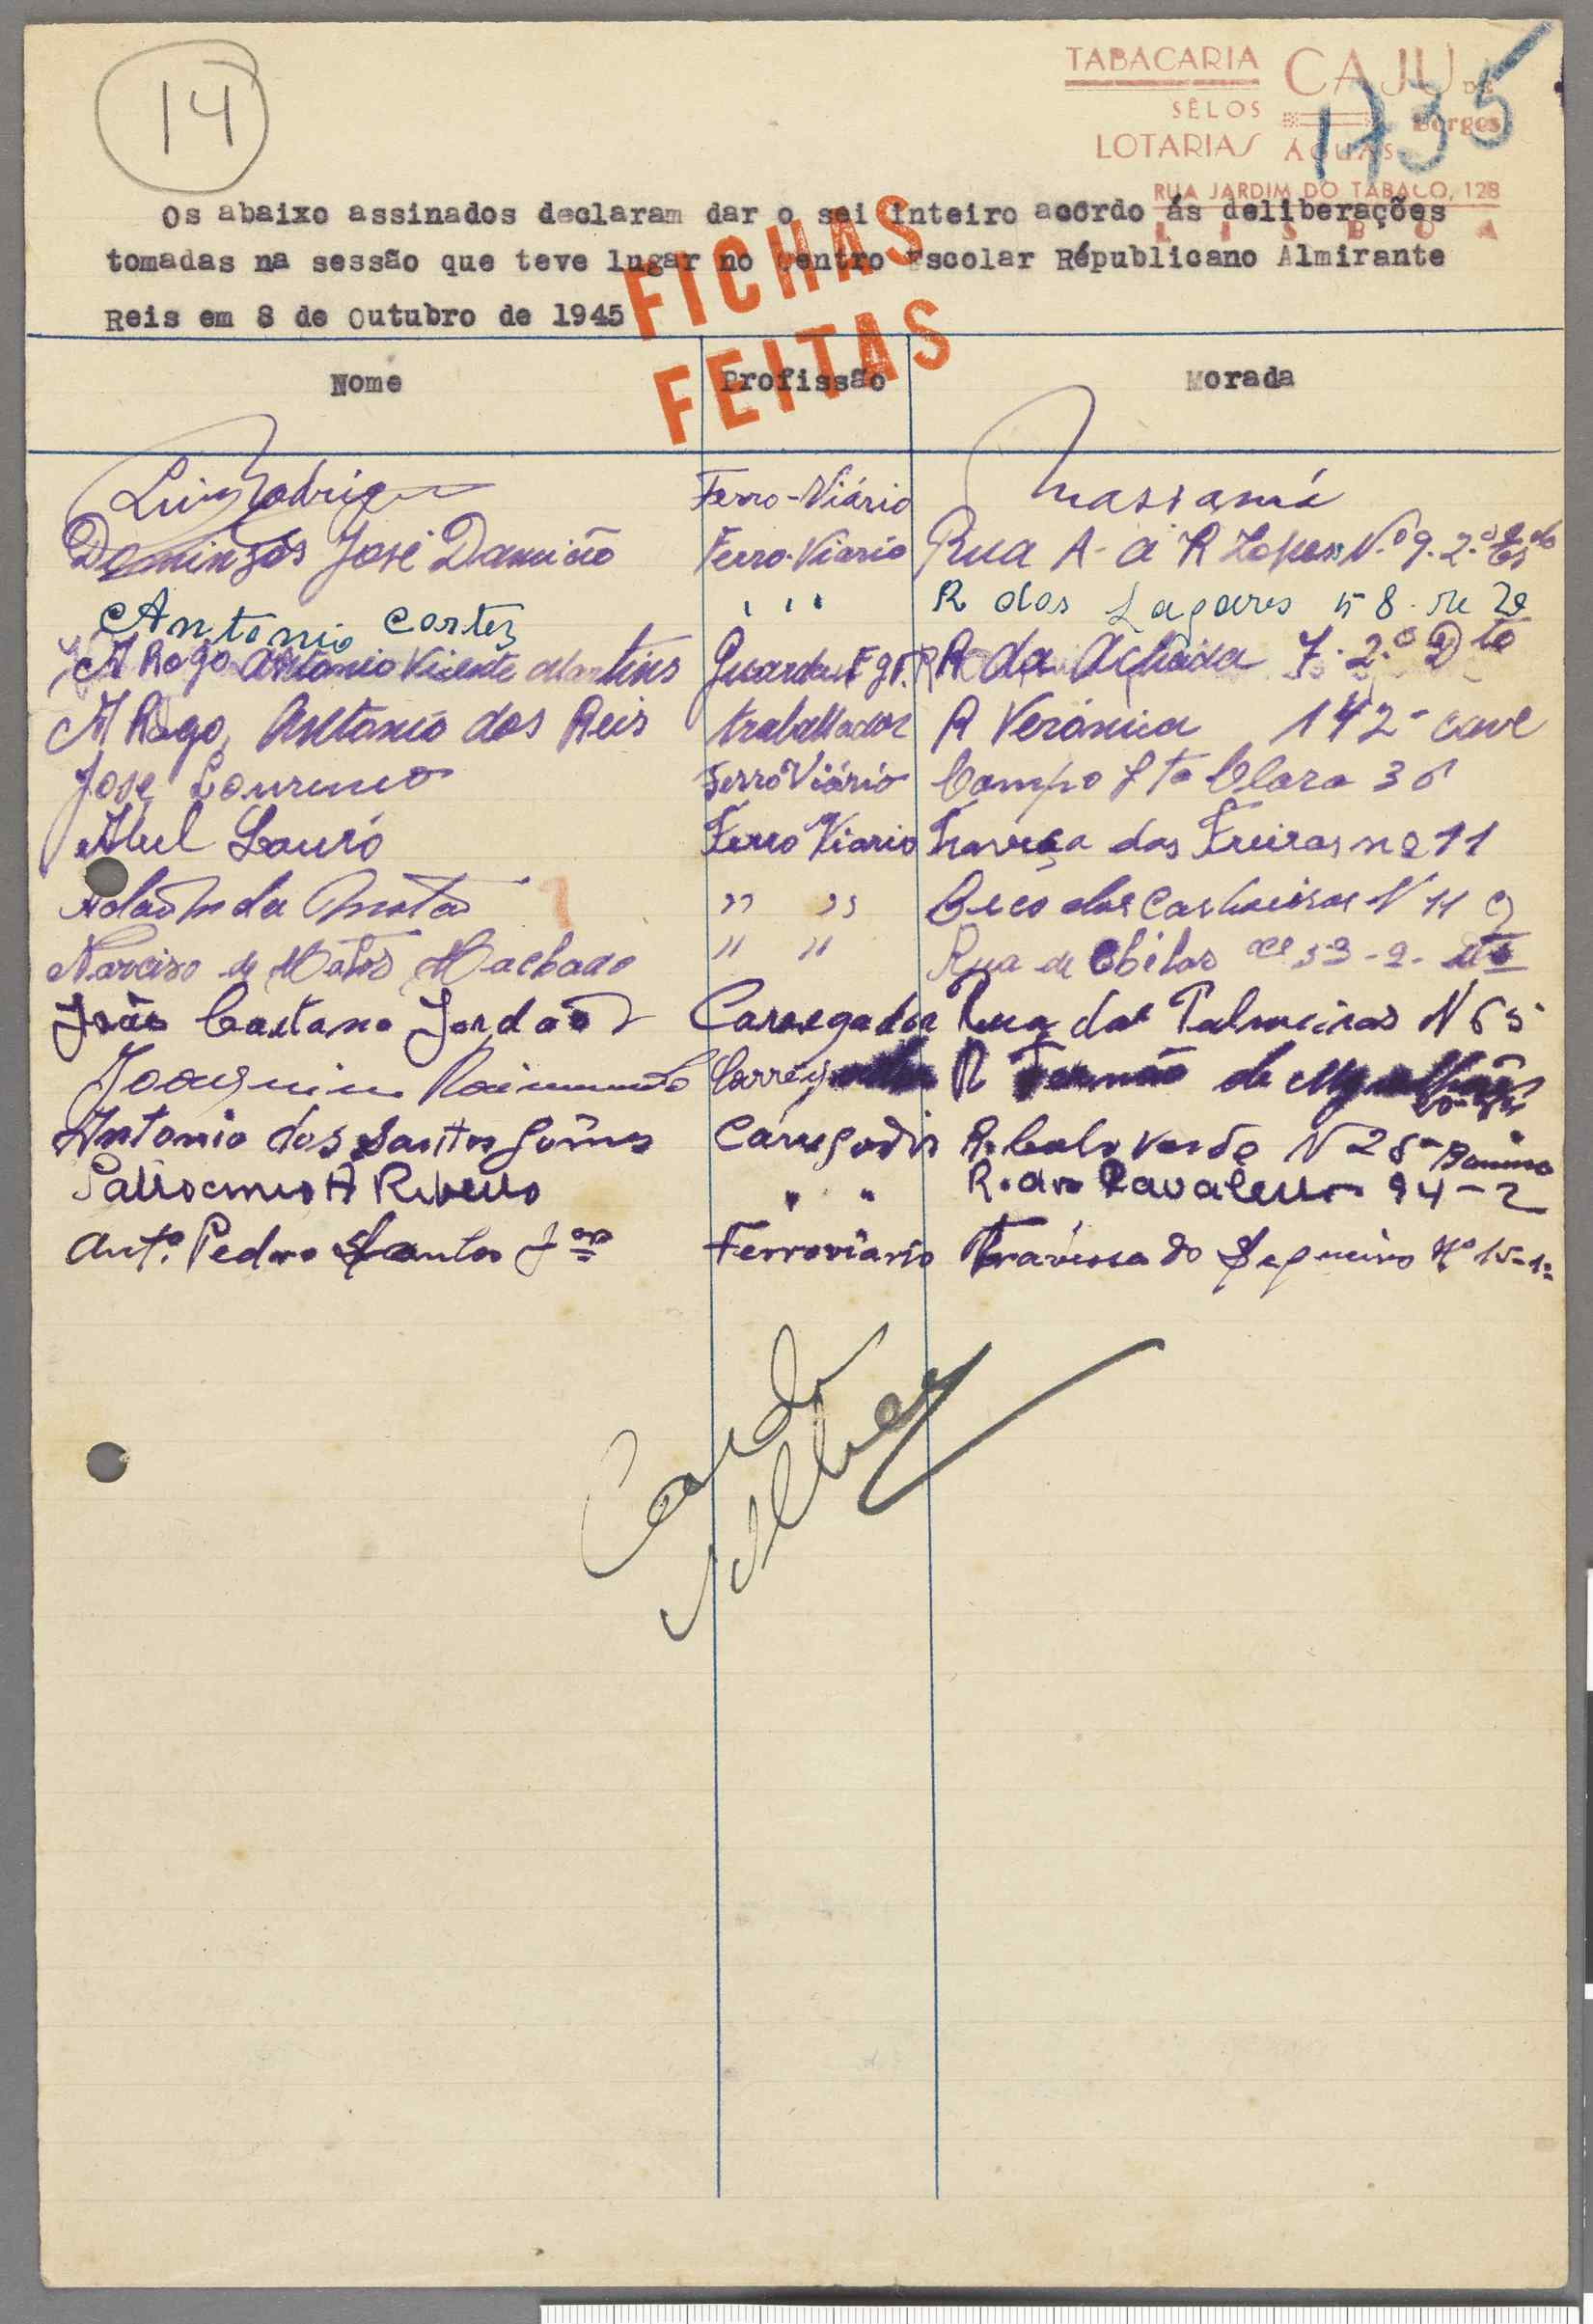 14
TABACARIA CAJU DE
SÊLOS Borges
LOTARIAS ÁGUAS
1735
RUA JARDIM DO TABACO, 128
LISBOA
Os abaixo assinados declaram dar o sei inteiro acôrdo ás deliberações
tomadas na sessão que teve lugar no Centro Escolar Républicano Almirante
Reis em 8 de Outubro de 1945
FICHAS
FEITAS
Nome Profissão Morada
Luiz Rodrigues Ferro-Viário Massamá
Domingos José Damião Ferro-Viario Rua A. á R Lopes N.º 9. 2.º
Antonio Cortez " " R dos Lagares 58
A Rogo Antonio Vicente Martins Guarda R da Achada 7. 2.º Dto
A Rogo, Antonio dos Reis trabalhador R Verónica 142 - cave
Jose Lourenco Ferro Viário Campo Sta Clara 36
Abel Lauró Ferro Viario Traveça das Freiras nº 11
da Mota " " Beco dos N 11
Narciso de Matos Machado " " Rua de Obidos
João Caetano Jordão Carregador Rua das Palmeiras N 65
Joaquim Raimundo R Fernão de
Antonio dos Santos Gomes Carregador R. Cabo Verde N 28
Patrocinio A Ribeiro " " R. dos Cavaleiros 94-2
Antº. Pedro Santos Jor Ferroviario Travessa do Sequeiro Nº 15-1º